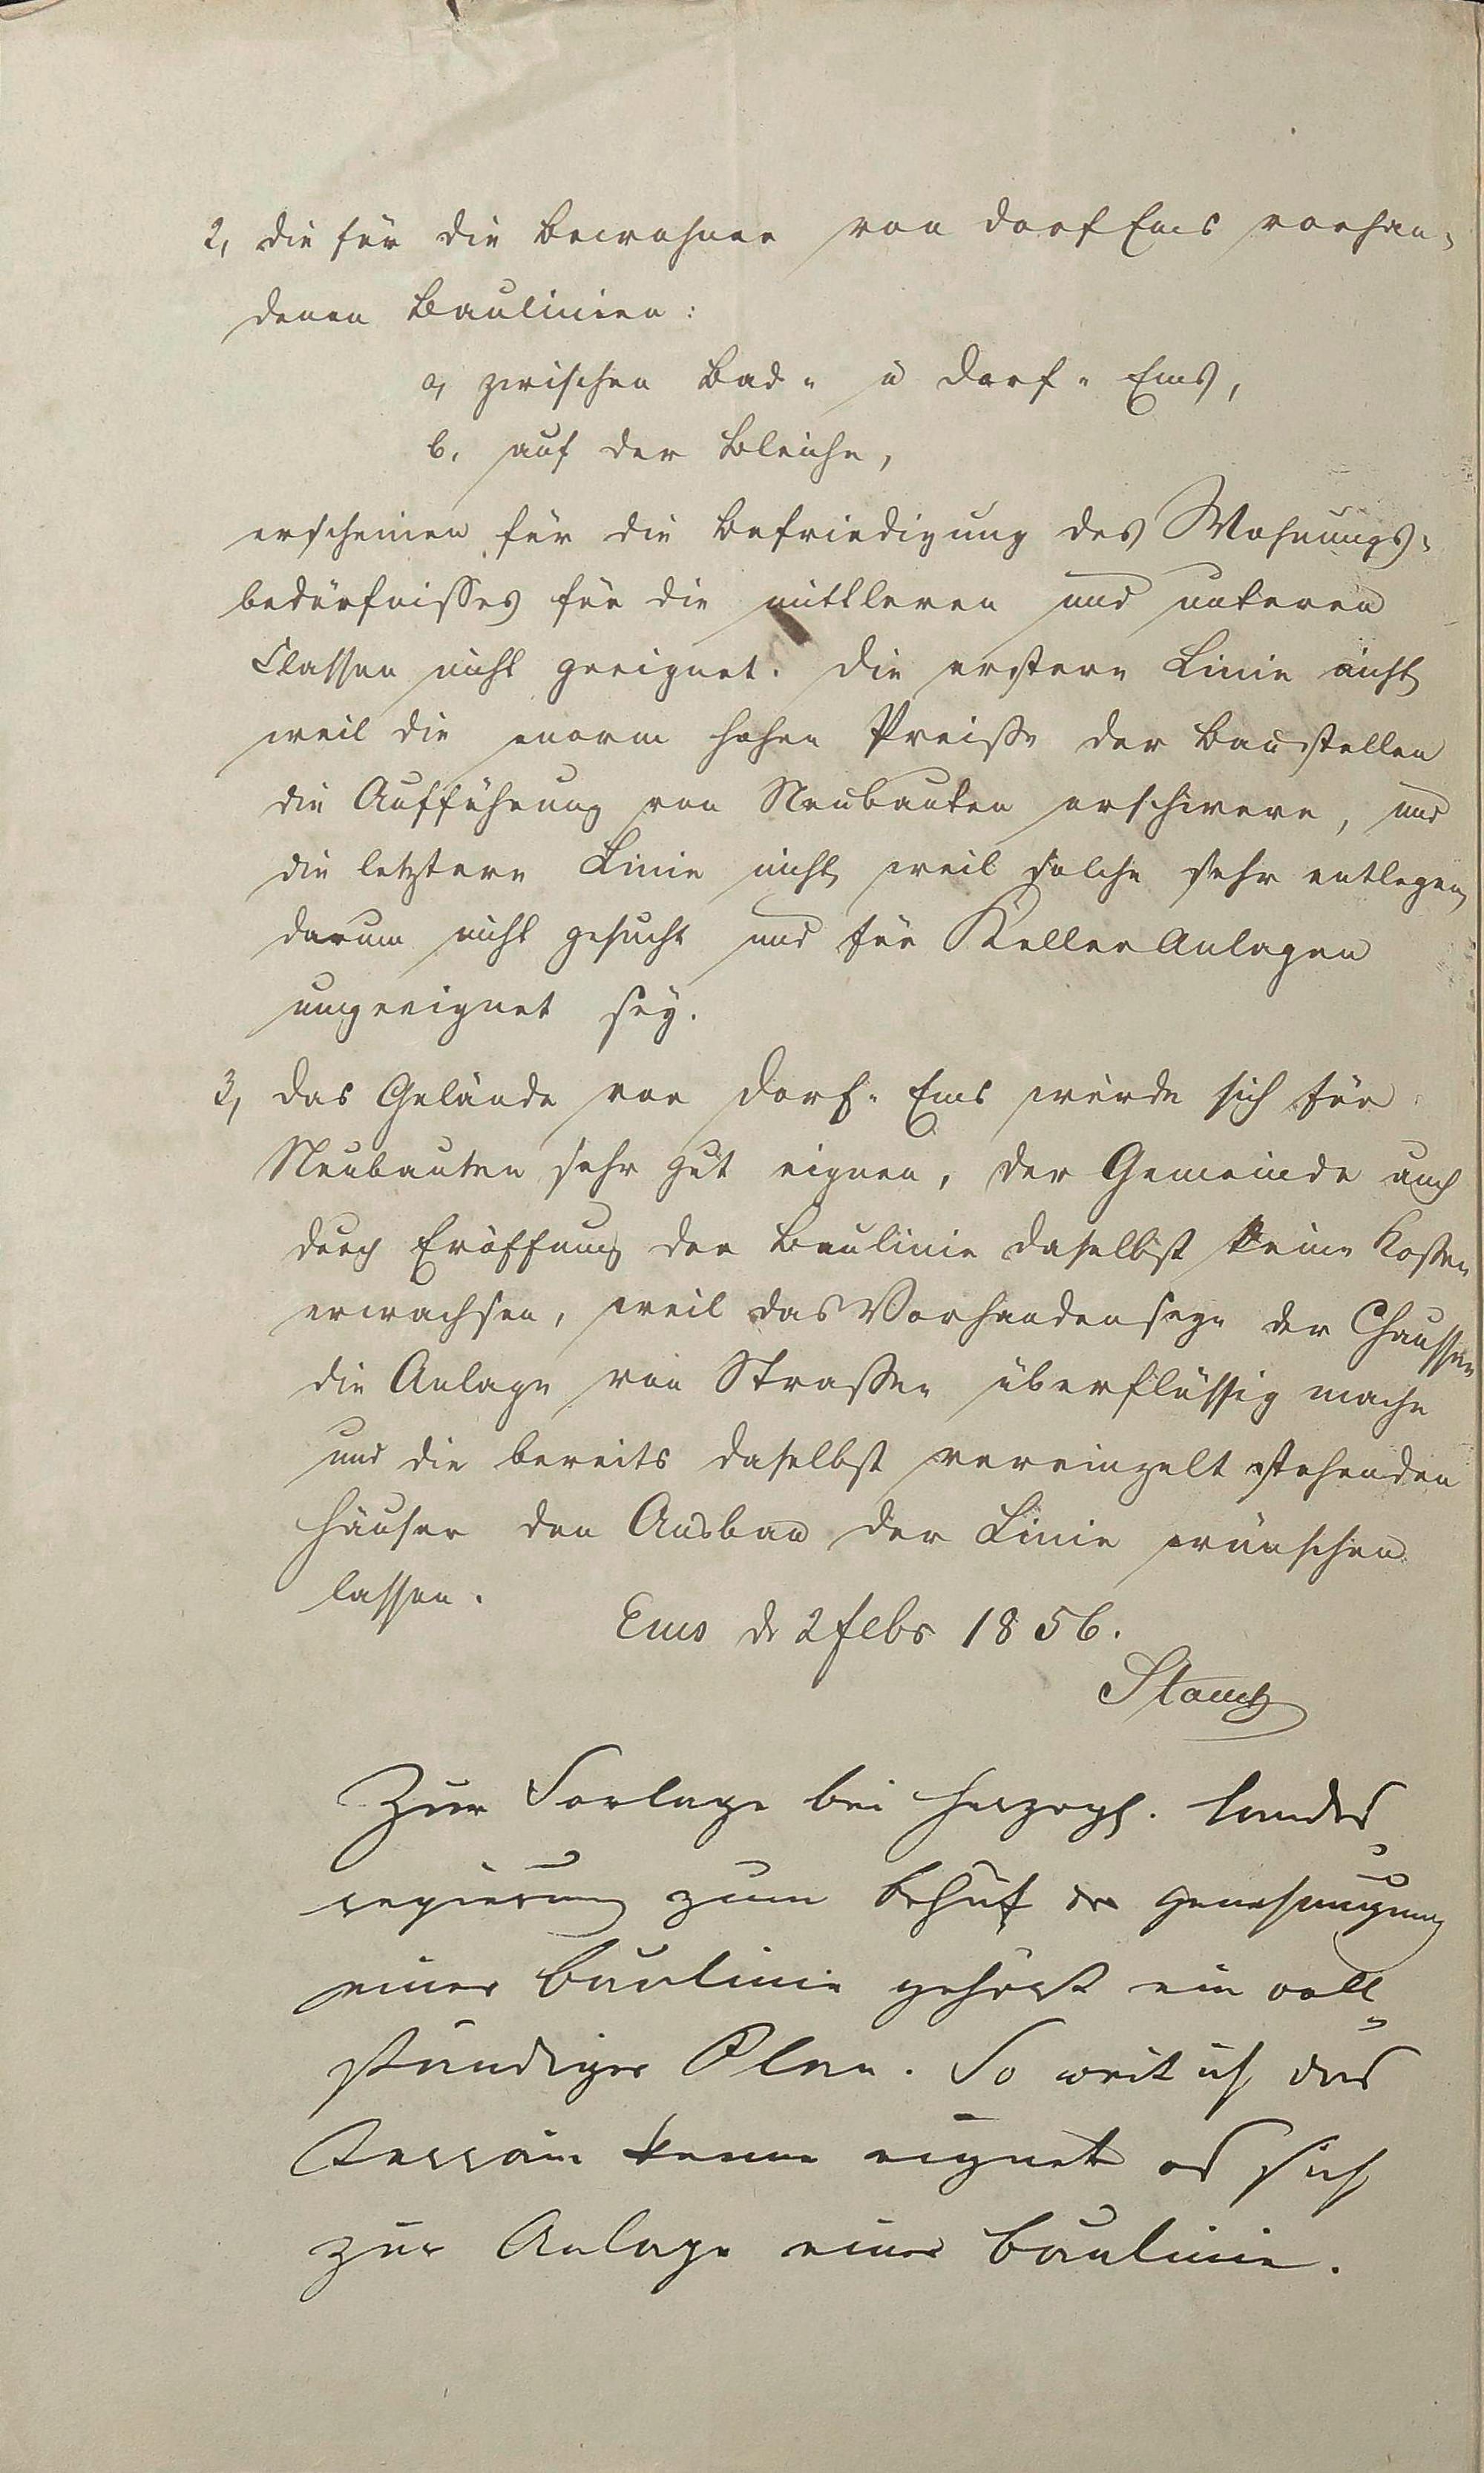 2, die für die Bewohner von Dorf Ems vorhan-
denen Baulinien:
a, zwischen Bad- u Dorf-Ems,
b, auf der Bleiche,
erscheinen für die Befriedigung des Wohnungs-
bedürfnisses für die mittleren und unteren
Classen nicht geeignet. Die erstere Linie nicht
weil die enorm hohen Preiße der Baustellen
die Aufführung von Neubauten erschwere, und
die letztere Linie nicht, weil solche sehr entlegen,
darum nicht gesucht und für Keller Anlagen
ungeeignet sey.
3, das Gelände vor Dorf-Ems würde sich für
Neubauten sehr gut eignen, der Gemeinde auch
durch Eröffnung der Baulinie daselbst keine Kosten
erwachsen, weil das Vorhandenseyn der Chaussee
die Anlage von Straßen überflüssig mache
und die bereits daselbst vereinzelt stehenden
Häuser den Ausbau der Linie wünschen
lassen.
Ems d 2 Febr 1856.
Zur Vorlage bei Herzogl. Landes-
regierung zum Behuf der Genehmigung
einer Baulinie gehört ein voll-
ständiger Plan. So weit ich das
Terrain kenne eignet es sich
zur Anlage einer Baulinie.